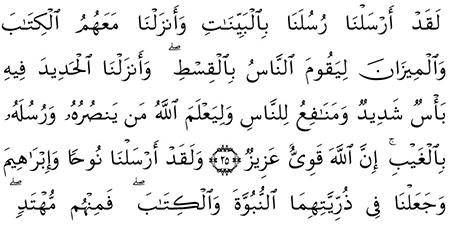 لَقَدْ أَرْسَلْنَا رُسُلَنَا بِالْبَيِّنَاتِ وَأَنزَلْنَا مَعَهُمُ الْكِتَابَ
وَالْمِيزَانَ لِيَقُومَ النَّاسُ بِالْقِسْطِ ۖ وَأَنزَلْنَا الْحَدِيدَ فِيهِ
بَأْسٌ شَدِيدٌ وَمَنَافِعُ لِلنَّاسِ وَلِيَعْلَمَ اللَّهُ مَن يَنصُرُهُ وَرُسُلَهُ
بِالْغَيْبِ ۚ إِنَّ اللَّهَ قَوِيٌّ عَزِيزٌ ﴿٢٥﴾ وَلَقَدْ أَرْسَلْنَا نُوحًا وَإِبْرَاهِيمَ
وَجَعَلْنَا فِي ذُرِّيَّتِهِمَا النُّبُوَّةَ وَالْكِتَابَ ۖ فَمِنْهُم مُّهْتَدٍ ۖ